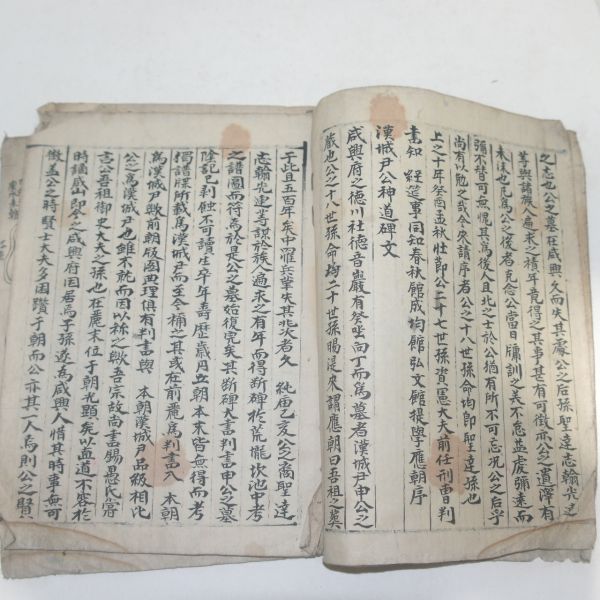 之志也公之墓在咸興久而失其處公之后孫聖達志翰光述
等與諸族入遍求之積年竟得之其事甚有可徵亦公之遺澤有
未沫也凡爲公之後者克念公當日牗訓之美不怠益虔彌遠而
彌不替可無愧其爲後人且北之士於公猶有所不可忘况公之后乎
尚有以勉之哉今來請序者公之十八世孫命均郎聖達孫也
上之十年癸酉孟秋壯節公二十七世孫資憲大夫前任刑曺判
書知 經筵事同知春秋館成均館弘文館提學應朝序
漢城尹公神道碑文
咸興府之德川社德音巖有癸坐向丁而爲墓者漢城尹申公之
藏也公之十八世孫命均二十世孫賜湜來謂應朝曰吾祖之葬
于此且五百年矣中罹兵業失其兆次者久 純廟乙亥公之裔聖達
志翰光述等謀於族入遍求之有年而得斷碑於荒隴坎池中考
之譜圖而符焉於是公之墓始復完矣其斷碑大書判書申公之墓
陰記已剝蝕不可讀生卒年壽歷歲月立朝本末皆無得而考
獨譜牒所載爲漢城尹而至今稱之其或在前麗爲判書入 本朝
爲漢城尹歟前朝版圖典理俱有判書與 本朝漢城尹品級相比
公之爲漢城尹也雖不就而因以稱之歟吾宗故尚書錫愚氏嘗
言公吾祖御史大夫之孫也在麗末位于朝光顯矣以直道不容於
時謫咸山即今之咸興府因居焉子孫遂爲咸興人惜其時事無可
徵盖公之時賢士大夫多困躓于朝而公亦其一人焉則公之賢